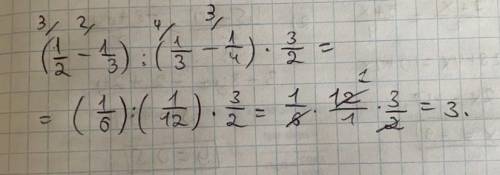 3/ 2/ 4/ 3/
(1/2 - 1/3) : (1/3 - 1/4) · 3/2 =
= (1/6) : (1/12) · 3/2 = 1/6 · 12/1 · 3/2 = 3.
1